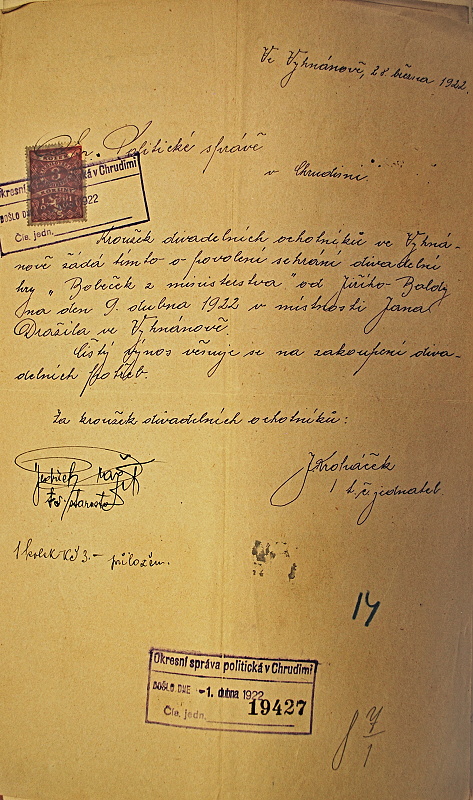 Ve Vyhnánově, 28 března 1922.
Politické správě
v Chrudimi.
Okresní
ká v Chrudimi
DOŠLO DNE
1922
Čís. jedn.
Kroužek divadelních ochotníků ve Vyhná-
nově žádá tímto o povolení sehrání divadelní
hry „Bobeček z ministerstva" od Jiřího Baldy
na den 9. dubna 1922 v místnosti Jana
Dražila ve Vyhnánově.
Čistý výnos věnuje se na zakoupení diva-
delních potřeb.
Za kroužek divadelních ochotníků:
starosta
t. č. jednatel
1 kolek Kč 3.- přiložen.
14
Okresní správa politická v Chrudimi
DOŠLO DNE -1. dubna 1922
Čís. jedn. 19427